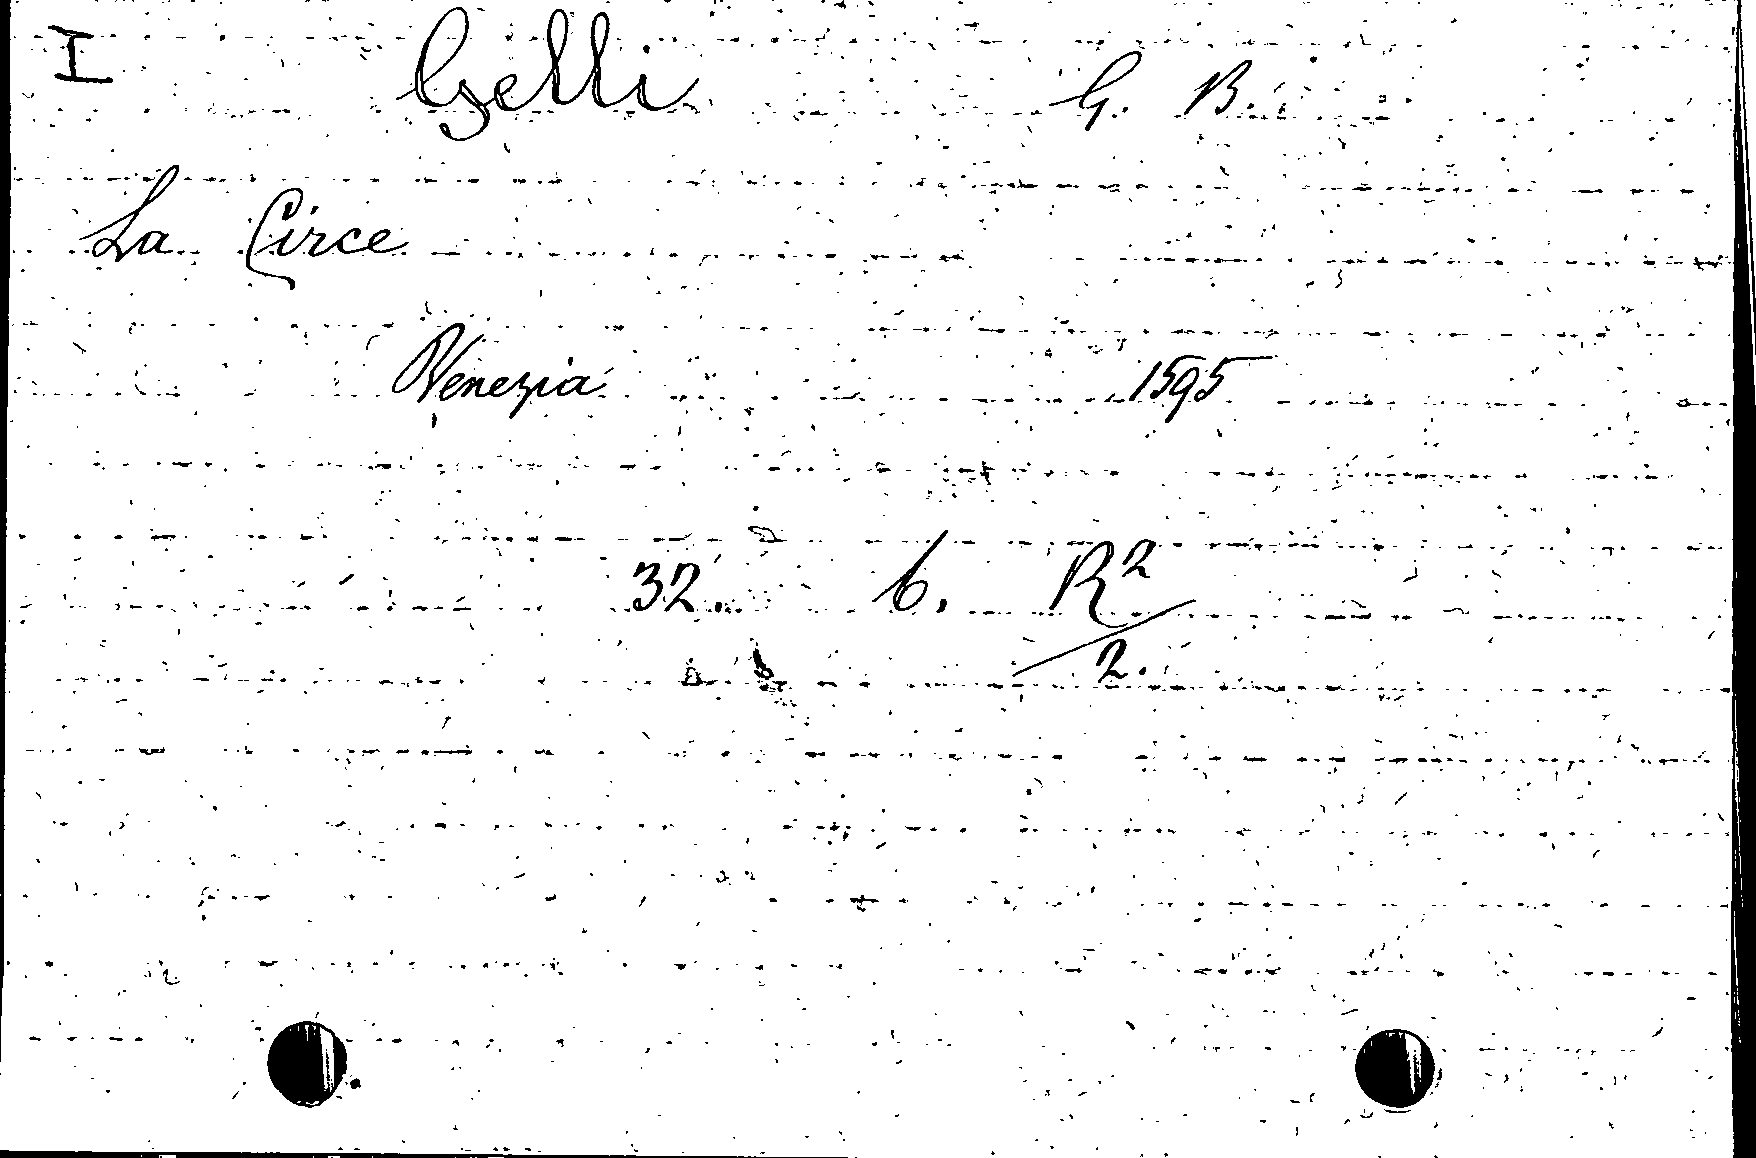 I Gelli G. B.
La Circe
Venezia 1595
32. 6. R2
2.